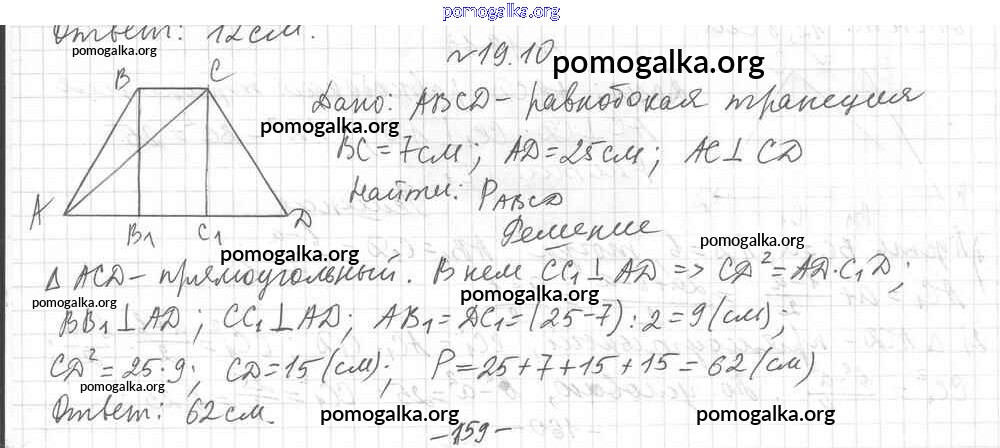 pomogalka.org
Ответ: 12 см.
pomogalka.org
№19.10
pomogalka.org
B C
Дано: ABCD – равнобокая трапеция
pomogalka.org
BC = 7 см; AD = 25 см; AC ⊥ CD
Найти: P_ABCD
A B₁ C₁ D
Решение
pomogalka.org
pomogalka.org
Δ ACD – прямоугольный. В нем CC₁ ⊥ AD => CD² = AD·C₁D;
pomogalka.org
pomogalka.org
BB₁ ⊥ AD; CC₁ ⊥ AD; AB₁ = DC₁ = (25-7):2 = 9 (см);
CD² = 25·9; CD = 15 (см); P = 25+7+15+15 = 62 (см)
pomogalka.org
Ответ: 62 см.
pomogalka.org
pomogalka.org
-159-